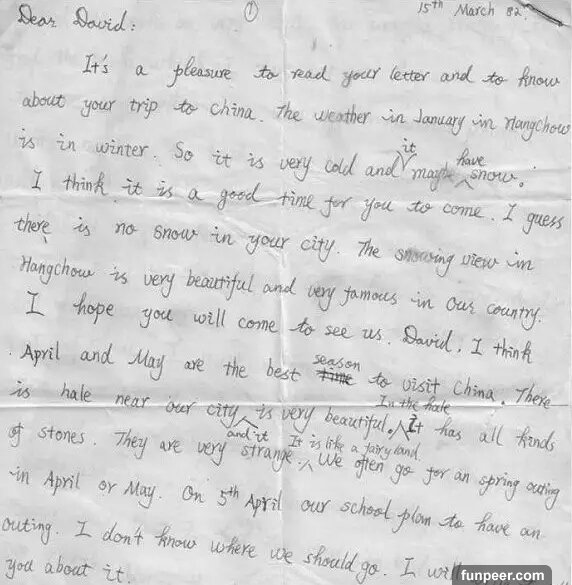 ①
15th March 82.
Dear David:
It's a pleasure to read your letter and to know
about your trip to China. The weather in January in Hangchow
is in winter. So it is very cold and it maybe have snow.
I think it is a good time for you to come. I guess
there is no snow in your city. The snowing view in
Hangchow is very beautiful and very famous in our country.
I hope you will come to see us. David, I think
April and May are the best time season to visit China. There
is hale near our city and it is very beautiful. In the hale It has all kinds
of stones. They are very strange. It is like a fairyland We often go for an spring outing
in April or May. On 5th April our school plan to have an
outing. I don't know where we should go. I will
you about it.
funpeer.com